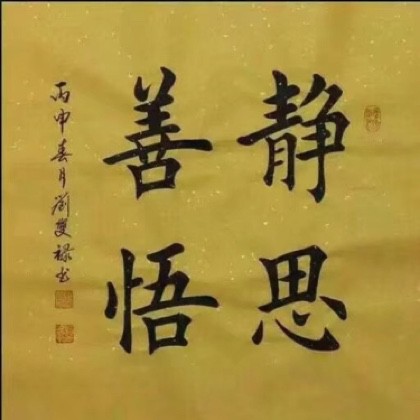 静思
善悟
丙申春月刘叟禄书